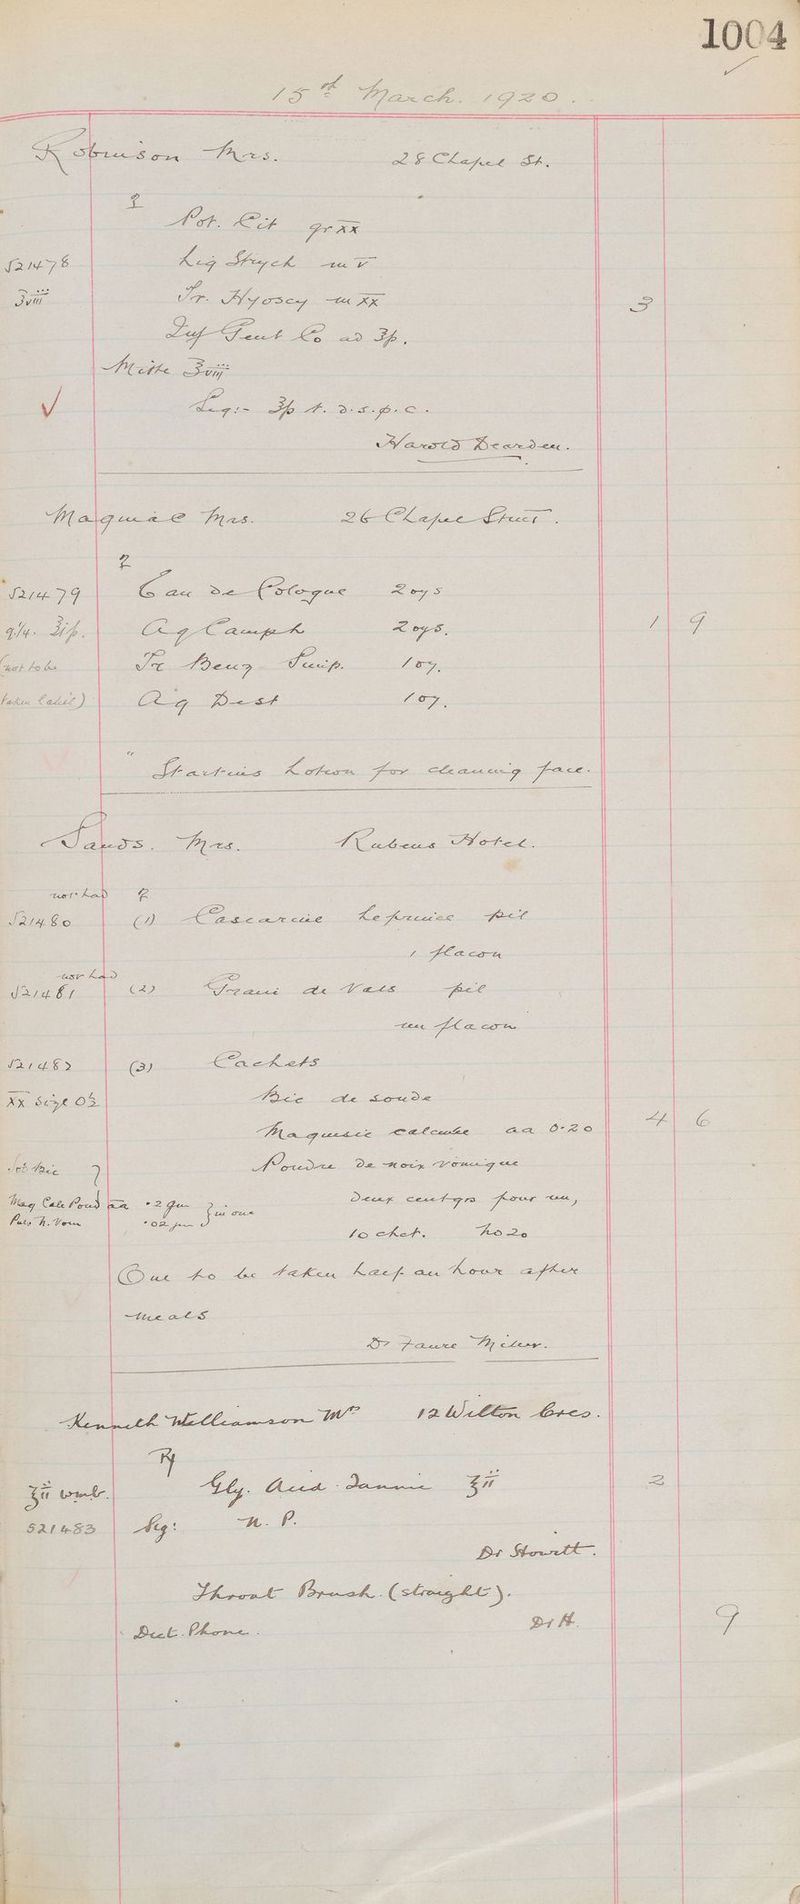 1004
15th March. 1920.
Robinson Mrs. 28 Chapel St.
Pot. Cit gr xx
521478 Liq Strych m v
℥viii Tr. Hyoscy m xx 3
Inf Gent Co ad ℥p.
Mitte ℥viii
Sig:- ℥p t.d.s.p.c.
Harold Dearden.
Maquiae Mrs. 26 Chapel Street.
521479 Eau de Cologne 2 ozs
Aq Camph 2 ozs. 1 9
(not to be Tr Benz Simp. 1 oz.
taken label) Aq Dest 1 oz.
" Startins Lotion for cleaning face.
Sands. Mrs. Rubens Hotel.
not had
521480 (1) Cascarine Leprince pil
1 flacon
not had
521481 (2) Grain de Vals pil
un flacon
521482 (3) Cachets
xx size 0½ Bic de soude
Magnesie calcinée aa 0.20 4 6
Sod Bic } Poudre de noix vomique
Mag Calc Pond aa .2 gm } in one deux centgrs pour un,
Pulv N. Vom .02 gm
10 chet. No 20
One to be taken half an hour after
meals
Dr Faure Miller.
Kenneth Williamson Mrs 12 Wilton Cres.
℞
℥ii wmb. Gly. Acid Tannic ℥ii 2
521483 Sig: N. P.
Dr Howitt.
Throat Brush (straight).
Dict. Phone. Dr H. 9